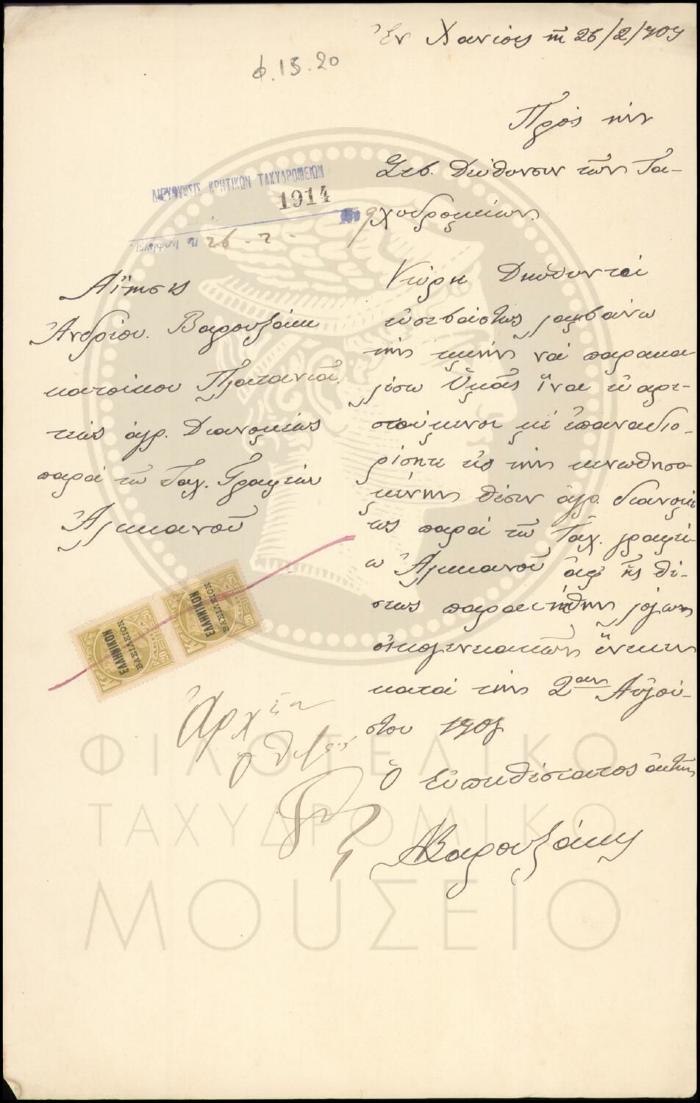 Ἐν Χανίοις τῇ 26/2/909
φ. 15.20
Πρὸς τὴν
Σεβ. Διεύθυνσιν τῶν Τα-
χυδρομείων
ΔΙΕΥΘΥΝΣΙΣ ΚΡΗΤΙΚΩΝ ΤΑΧΥΔΡΟΜΕΙΩΝ
1914
26-2-
9
Αἴτησις
Ἀνδρέου Βαρουξάκη
κατοίκου Πλατανιᾶ
τέως ἀγρ. Διανομέως
παρὰ τῷ Ταχ. Γραφείῳ
Ἀλικιανοῦ
Κύριε Διευθυντά
εὐσεβάστως λαμβάνω
τὴν τιμὴν νὰ παρακα-
λέσω Ὑμᾶς ἵνα εὐαρε-
στούμενοι μὲ ἐπαναδιο-
ρίσητε εἰς τὴν κενωθησο-
μένην θέσιν ἀγρ. διανομέ-
ως παρὰ τῷ Ταχ. γραφεί-
ῳ Ἀλικιανοῦ ἀφ' ἧς θέ-
σεως παρῃτήθην λόγων
οἰκογενειακῶν ἕνεκεν
κατὰ τὴν 2αν Αὐγού-
στου 1908
Ὁ εὐπειθέστατος
ΑΒαρουξάκης
ΒΑΣΙΛΕΙΟΝ
ΕΛΛΗΝΙΚΟΝ
ΒΑΣΙΛΕΙΟΝ
ΕΛΛΗΝΙΚΟΝ
ΦΙΛΟΤΕΛΙΚΟ
ΤΑΧΥΔΡΟΜΙΚΟ
ΜΟΥΣΕΙΟ